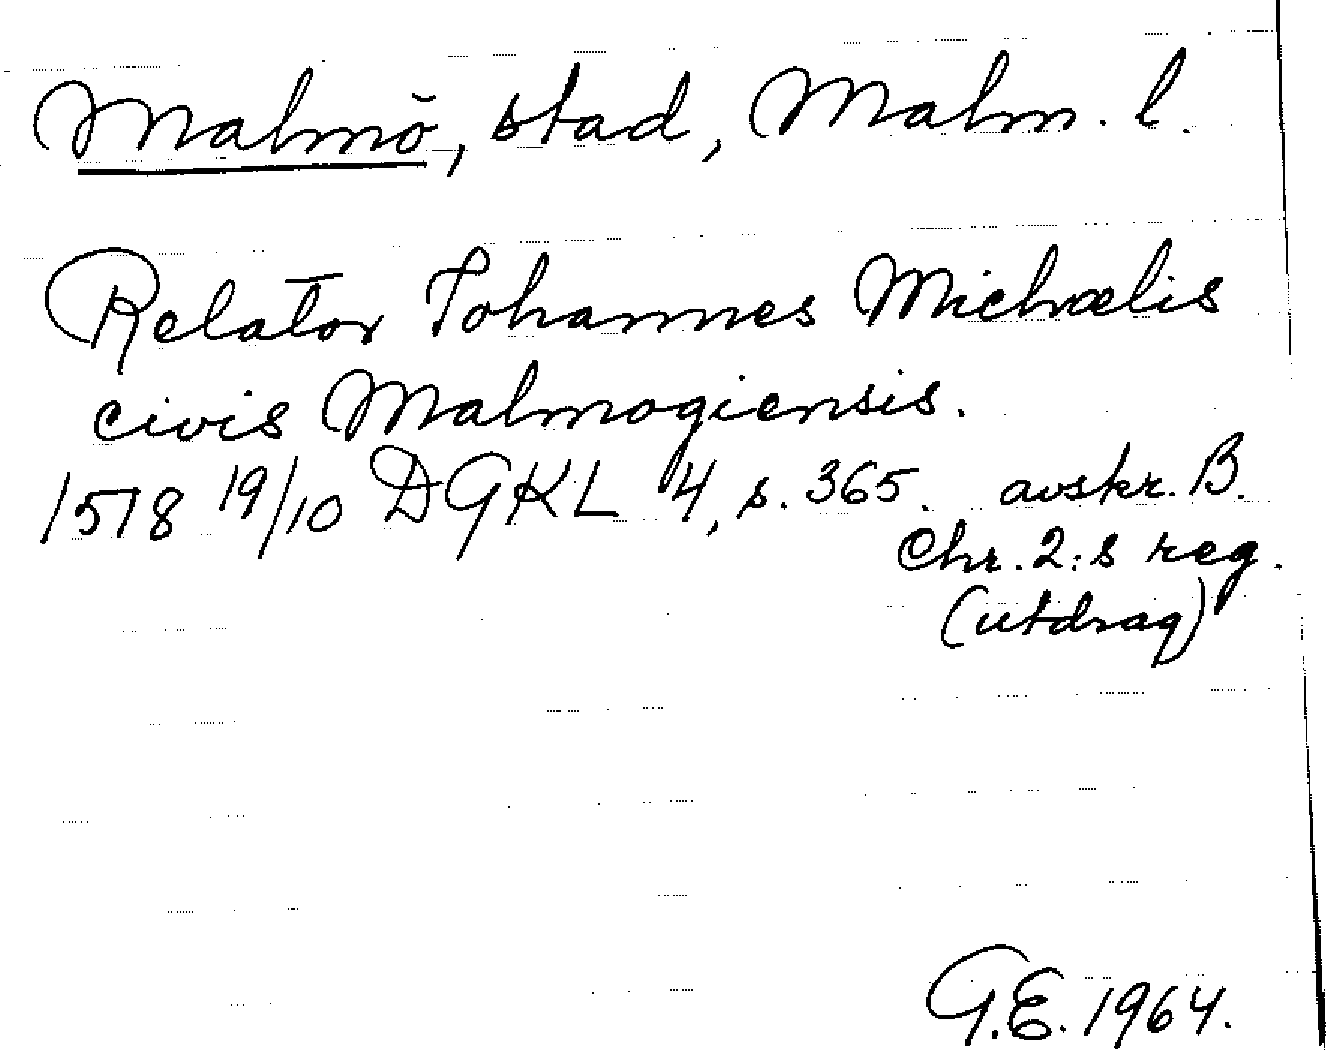 Malmö, stad, Malm. l.
Relator Johannes Michaelis
civis Malmogiensis.
1518 19/10 DGKL 4, s. 365. avskr. B.
Chr. 2:s reg.
(utdrag)
G.E. 1964.